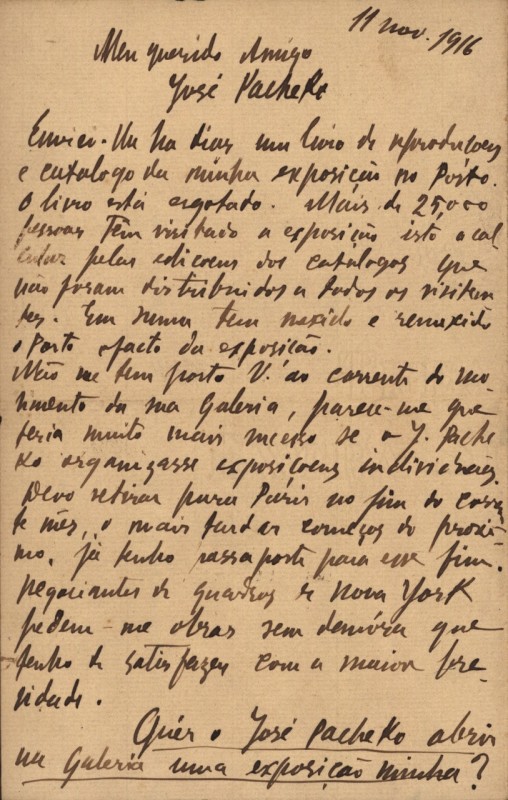 11 nov. 1916
Meu querido Amigo
José Pacheko
Enviei-lhe ha dias um livro de reproduçoens
e catalogo da minha exposição no Pórto.
O livro está esgotado. Mais de 25,000
pessoas têm visitado a exposição isto a cal
cular pelas ediçoens dos catalogos que
não foram distribuidos a todos os visitan
tes. Em suma tem mexido e remexido
o Porto o facto da exposição.
Não me tem posto V. ao corrente do mo
vimento da sua Galeria, parece-me que
teria muito mais sucesso se o J. Pache
ko organizasse exposiçoens individuáes.
Devo retirar para Páris no fim do corren
te mês, o mais tardar começos do proxi
mo, já tenho passaporte para esse fim.
Negociantes de quadros de Nova York
pedem-me obras sem demóra que
tenho de satisfazer com a maior bre
vidade.
Quér o José Pacheko abrir
na Galeria uma exposição minha?